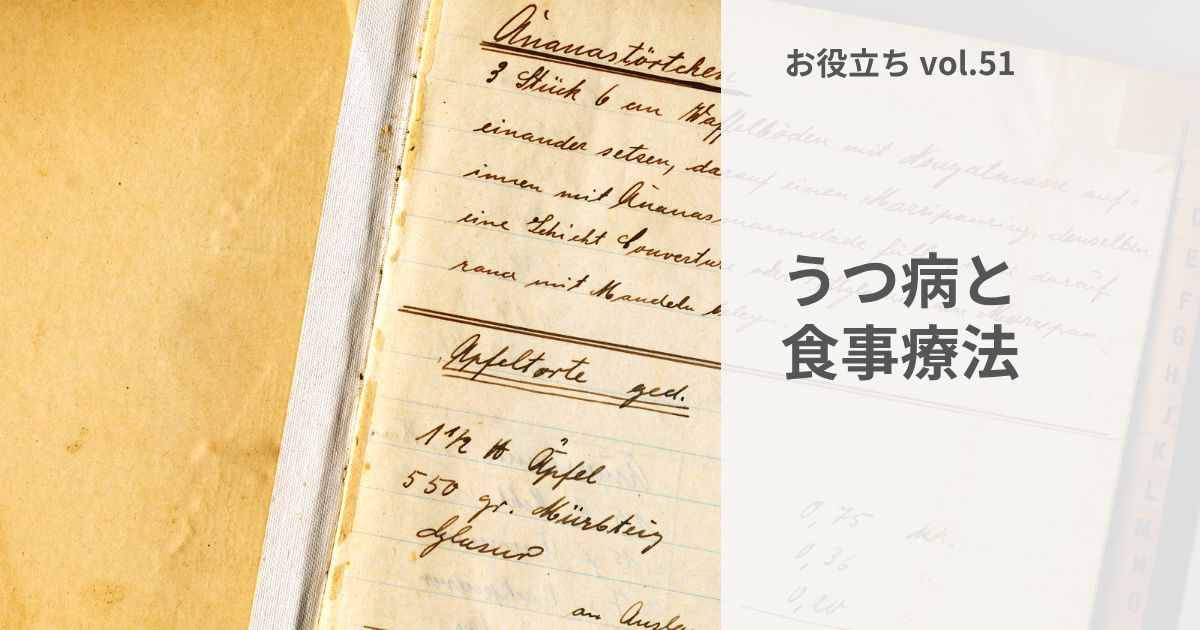 お役立ち vol.51
うつ病と
食事療法
Ananastörtchen
3 Stück 6 cm Waffelböden mit Nougatmasse auf-
einander setzen, darauf einen Marzipanring, denselben
innen mit Ananasmarmelade füllen, darauf
eine Schicht Couverture oder
rand mit Mandeln belegen.
Apfeltorte ged.
1 1/2 Äpfel
550 gr. Mürbteig
Glasur
0,75
0,36
0,20
an
E
F
G
H
K
L
M
N
O